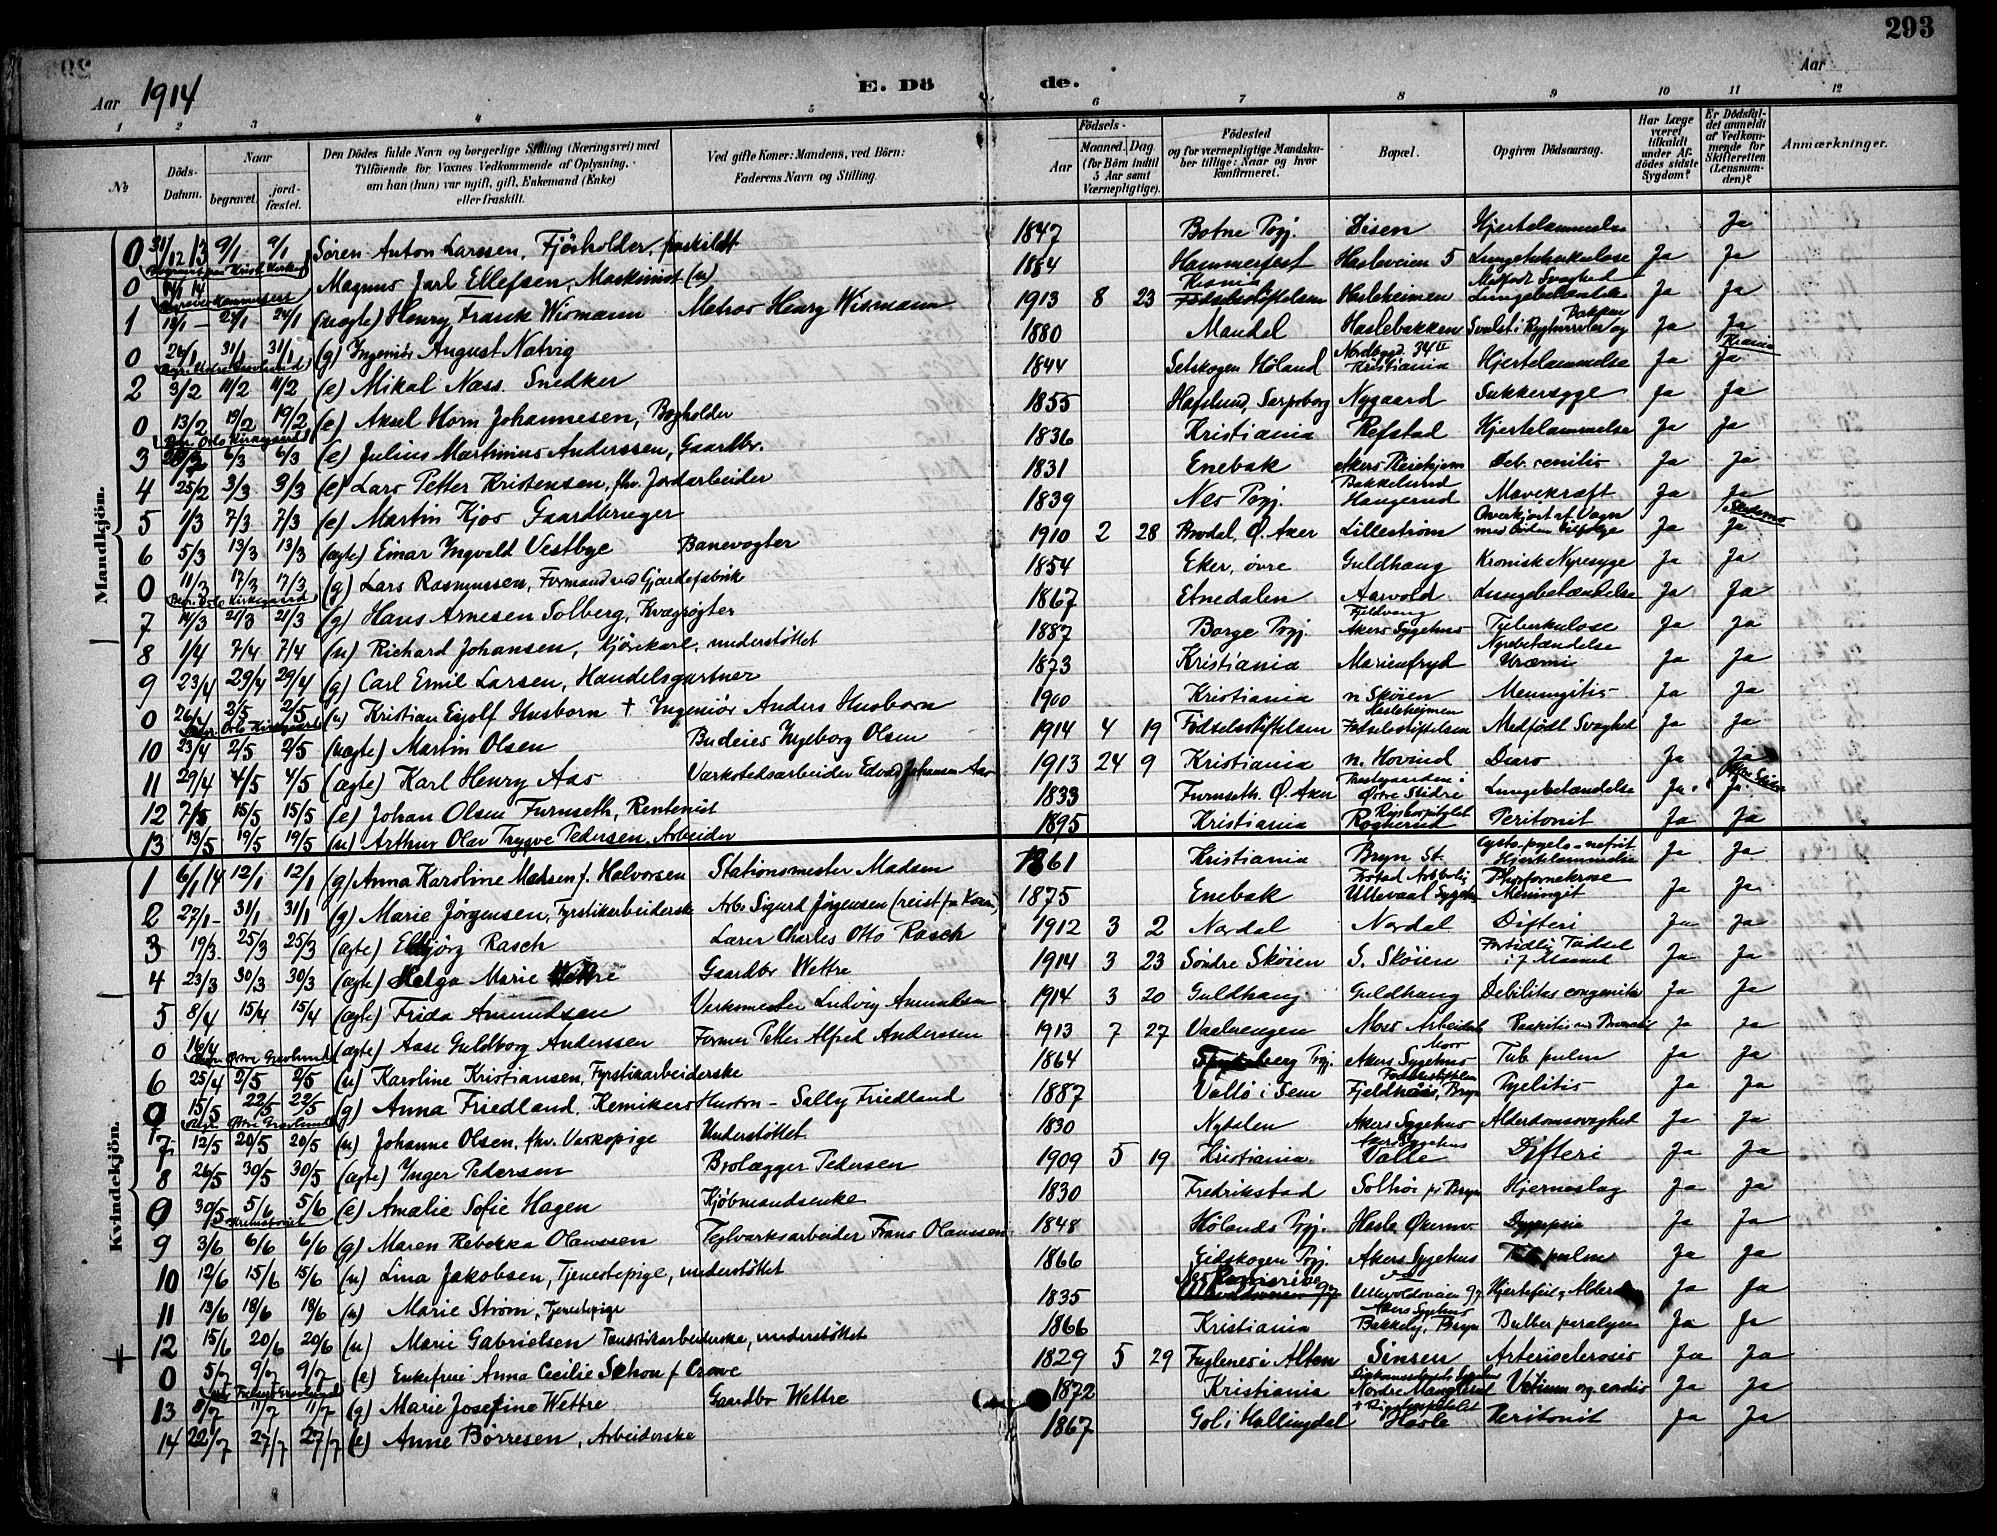 293
Aar 1914
E. Dö de.
Aar
1 2 3 4 5 6 7 8 9 10 11 12
№
Döds-Datum.
Naar begravet. jordfæstet.
Den Dödes fulde Navn og borgerlige Stilling (Næringsvei) med Tilföiende for Voxnes Vedkommende af Oplysning, om han (hun) var ugift, gift, Enkemand (Enke) eller fraskilt.
Ved gifte Koner: Mandens, ved Börn: Faderens Navn og Stilling.
Födsels-
Aar
Maaned. Dag.
(for Börn indtil 5 Aar samt Værnepligtige).
Födested og for værnepligtige Mandskaber tillige: Naar og hvor konfirmeret.
Bopæl.
Opgiven Dödsaarsag.
Har Læge været tilkaldt under Afdödes sidste Sygdom?
Er Dödsfaldet anmeldt af Vedkommende for Skifteretten (Lensmanden)?
Anmærkninger.
Mandkjön.
0 31/12 13 9/1 9/1 Søren Anton Larssen, Fjøsholder, fraskildt 1847 Botne Pgj. Disen Hjertelammelse Ja
0 Magnus Jarl Ellefsen, Maskinist (u) 1884 Hammerfest Hasleveien 5 Lungetuberkulose Ja Ja
1 24/1 24/1 (uægte) Henry Frank Wismann Matros Henry Wismann 1913 8 23 Hasleheimen Medfødt Svaghed Ja Ja
0 26/1 31/1 31/1 (g) Ingeniør August Natvig 1880 Mandal Haslebakken Ja Ja
2 3/2 11/2 11/2 (e) Mikal Næss. Snedker 1844 Setskogen Høland Kristiania Hjertelammelse Ja Ja
0 13/2 19/2 19/2 (e) Aksel Horn Johannesen, Bogholder 1855 Hafslund, Sarpsborg Nygaard Sukkersyge Ja Ja
3 6/3 6/3 (e) Julius Martinius Anderssen, Gaardbr. 1836 Kristiania Refstad Hjertelammelse Ja Ja
4 25/2 3/3 3/3 (e) Lars Petter Kristensen, fhv. Jordarbeider 1831 Enebak Akers Pleiehjem Deb. senilis Ja Ja
5 1/3 7/3 7/3 (e) Martin Kjos Gaardbruger 1839 Nes Pgj. Haugerud Mavekræft Ja Ja
6 5/3 13/3 13/3 (ægte) Einar Ingvald Vestbye Banevogter 1910 2 28 Ø. Aker Lillestrøm Overkjørt af Vogn med Døden tilfølge Ja Ja
0 11/3 17/3 17/3 (g) Lars Rasmussen, Formand ved Gjærdefabrik 1854 Eker, øvre Guldhaug Kronisk Nyresyge Ja Ja
7 14/3 21/3 21/3 (g) Hans Arnesen Solberg, Kvægrøgter 1867 Etnedalen Aarvold Lungebetændelse Ja Ja
8 1/4 7/4 7/4 (u) Richard Johansen, Kjørekarl, understøttet 1887 Borge Pgj. Akers Sygehus Tuberkulose Ja Ja
9 23/4 29/4 29/4 (g) Carl Emil Larsen, Handelsgartner 1873 Kristiania Marienfryd Nyrebetændelse Uræmi Ja Ja
0 26/4 2/5 2/5 (u) Kristian Eyolf Husborn + Ingeniør Anders Husborn 1900 Kristiania n. Skøien Meningitis Ja Ja
10 23/4 2/5 2/5 (uægte) Martin Olsen Budeie Ingeborg Olsen 1914 4 19 Fødselsstiftelsen Hasleheimen Fødselsstiftelsen Medfødt Svaghed Ja Ja
11 29/4 4/5 4/5 (ægte) Karl Henry Aas Værkstedsarbeider Edvard Johansen Aas 1913 24 9 Kristiania n. Hovind Ja Ja
12 7/5 15/5 15/5 (e) Johan Olsen Furuseth, Rentenist 1833 Furuseth, Ø. Aker Prestgaarden i Øvre Slidre Lungebetændelse Ja Ja
13 13/5 19/5 19/5 (u) Arthur Olav Trygve Pedersen, Arbeider 1895 Kristiania Rigshospitalet Peritonit Ja Ja
Kvindekjön.
1 6/1 14 12/1 12/1 (g) Anna Karoline Madsen f. Halvorsen Stationsmester Madsen 1861 Kristiania Bryn St. Cysto-pyelo-nefrit Hjertelammelse Ja Ja
2 27/1 31/1 31/1 (g) Marie Jørgensen, Fyrstikarbeiderske Arb. Sigurd Jørgensen 1875 Enebak Ullevaal Sygehus Phosfornekrose Meningit Ja Ja
3 19/3 25/3 25/3 (ægte) Ellbjørg Rasch Lærer Charles Otto Rasch 1912 3 2 Nordal Nordal Difteri Ja Ja
4 23/3 30/3 30/3 (ægte) Helga Marie Wettre Gaardbr Wettre 1914 3 23 Søndre Skøien S. Skøien Ja Ja
5 8/4 15/4 15/4 (ægte) Frida Amundsen Verksmester Ludvig Amundsen 1914 3 20 Guldhaug Guldhaug Debilitas congenita Ja Ja
0 16/4 (ægte) Aase Guldborg Anderssen Former Petter Alfred Anderssen 1913 7 27 Vaalerengen Ja Ja
6 25/4 2/5 2/5 (u) Karoline Kristiansen, Fyrstikarbeiderske 1864 Spydeberg Pgj. Akers Sygehus Tub. pulm Ja Ja
0 15/5 22/5 22/5 (g) Anna Friedland, Kemikers Hustru - Sally Friedland 1887 Vallø i Sem Bryn Pyelitis Ja Ja
7 12/5 20/5 20/5 (u) Johanne Olsen, fhv. Vaskepige Understøttet 1830 Nydalen Akers Sygehus Alderdomssvaghed Ja Ja
8 26/5 30/5 30/5 (ægte) Inger Pedersen Brolægger Pedersen 1909 5 19 Kristiania Akers Sygehus Valle Difteri Ja Ja
0 30/5 5/6 5/6 (e) Amalie Sofie Hagen Kjøbmandsenke 1830 Fredrikstad Solhøi pr Bryn Hjerneslag Ja Ja
9 3/6 6/6 6/6 (g) Maren Rebekka Olaussen Teglværksarbeider Frans Olaussen 1848 Hølands Pgj. Hasle Økernv. Dyspepsia Ja Ja
10 12/6 15/6 15/6 (u) Lina Jakobsen, Tjenestepige, understøttet 1866 Eidskogen Pgj. Akers Sygehus Tub. pulm Ja Ja
11 13/6 18/6 18/6 (u) Marie Strøm, Tjenestepige 1835 Nes Romerike Ullevoldsveien 97 Hjertefeil, Alder Ja Ja
12 15/6 20/6 20/6 (u) Marie Gabrielsen Fyrstikarbeiderske, understøttet 1866 Kristiania Akers Sygehus Bakkely, Bryn Bulbær paralyse Ja Ja
0 5/7 9/7 9/7 (e) Enkefrue Anna Cecilie Schou f. Crowe 1829 5 29 Fuglenes i Alten Sinsen Arterisclerosis Ja Ja
13 8/7 11/7 11/7 (g) Marie Josefine Wettre Gaardbr Wettre 1872 Kristiania Nordre Manglerud Vitium org. cordis Ja Ja
14 22/7 27/7 27/7 (e) Anne Børresen, Arbeiderske 1867 Gol i Hallingdal Hasle Peritonit Ja Ja